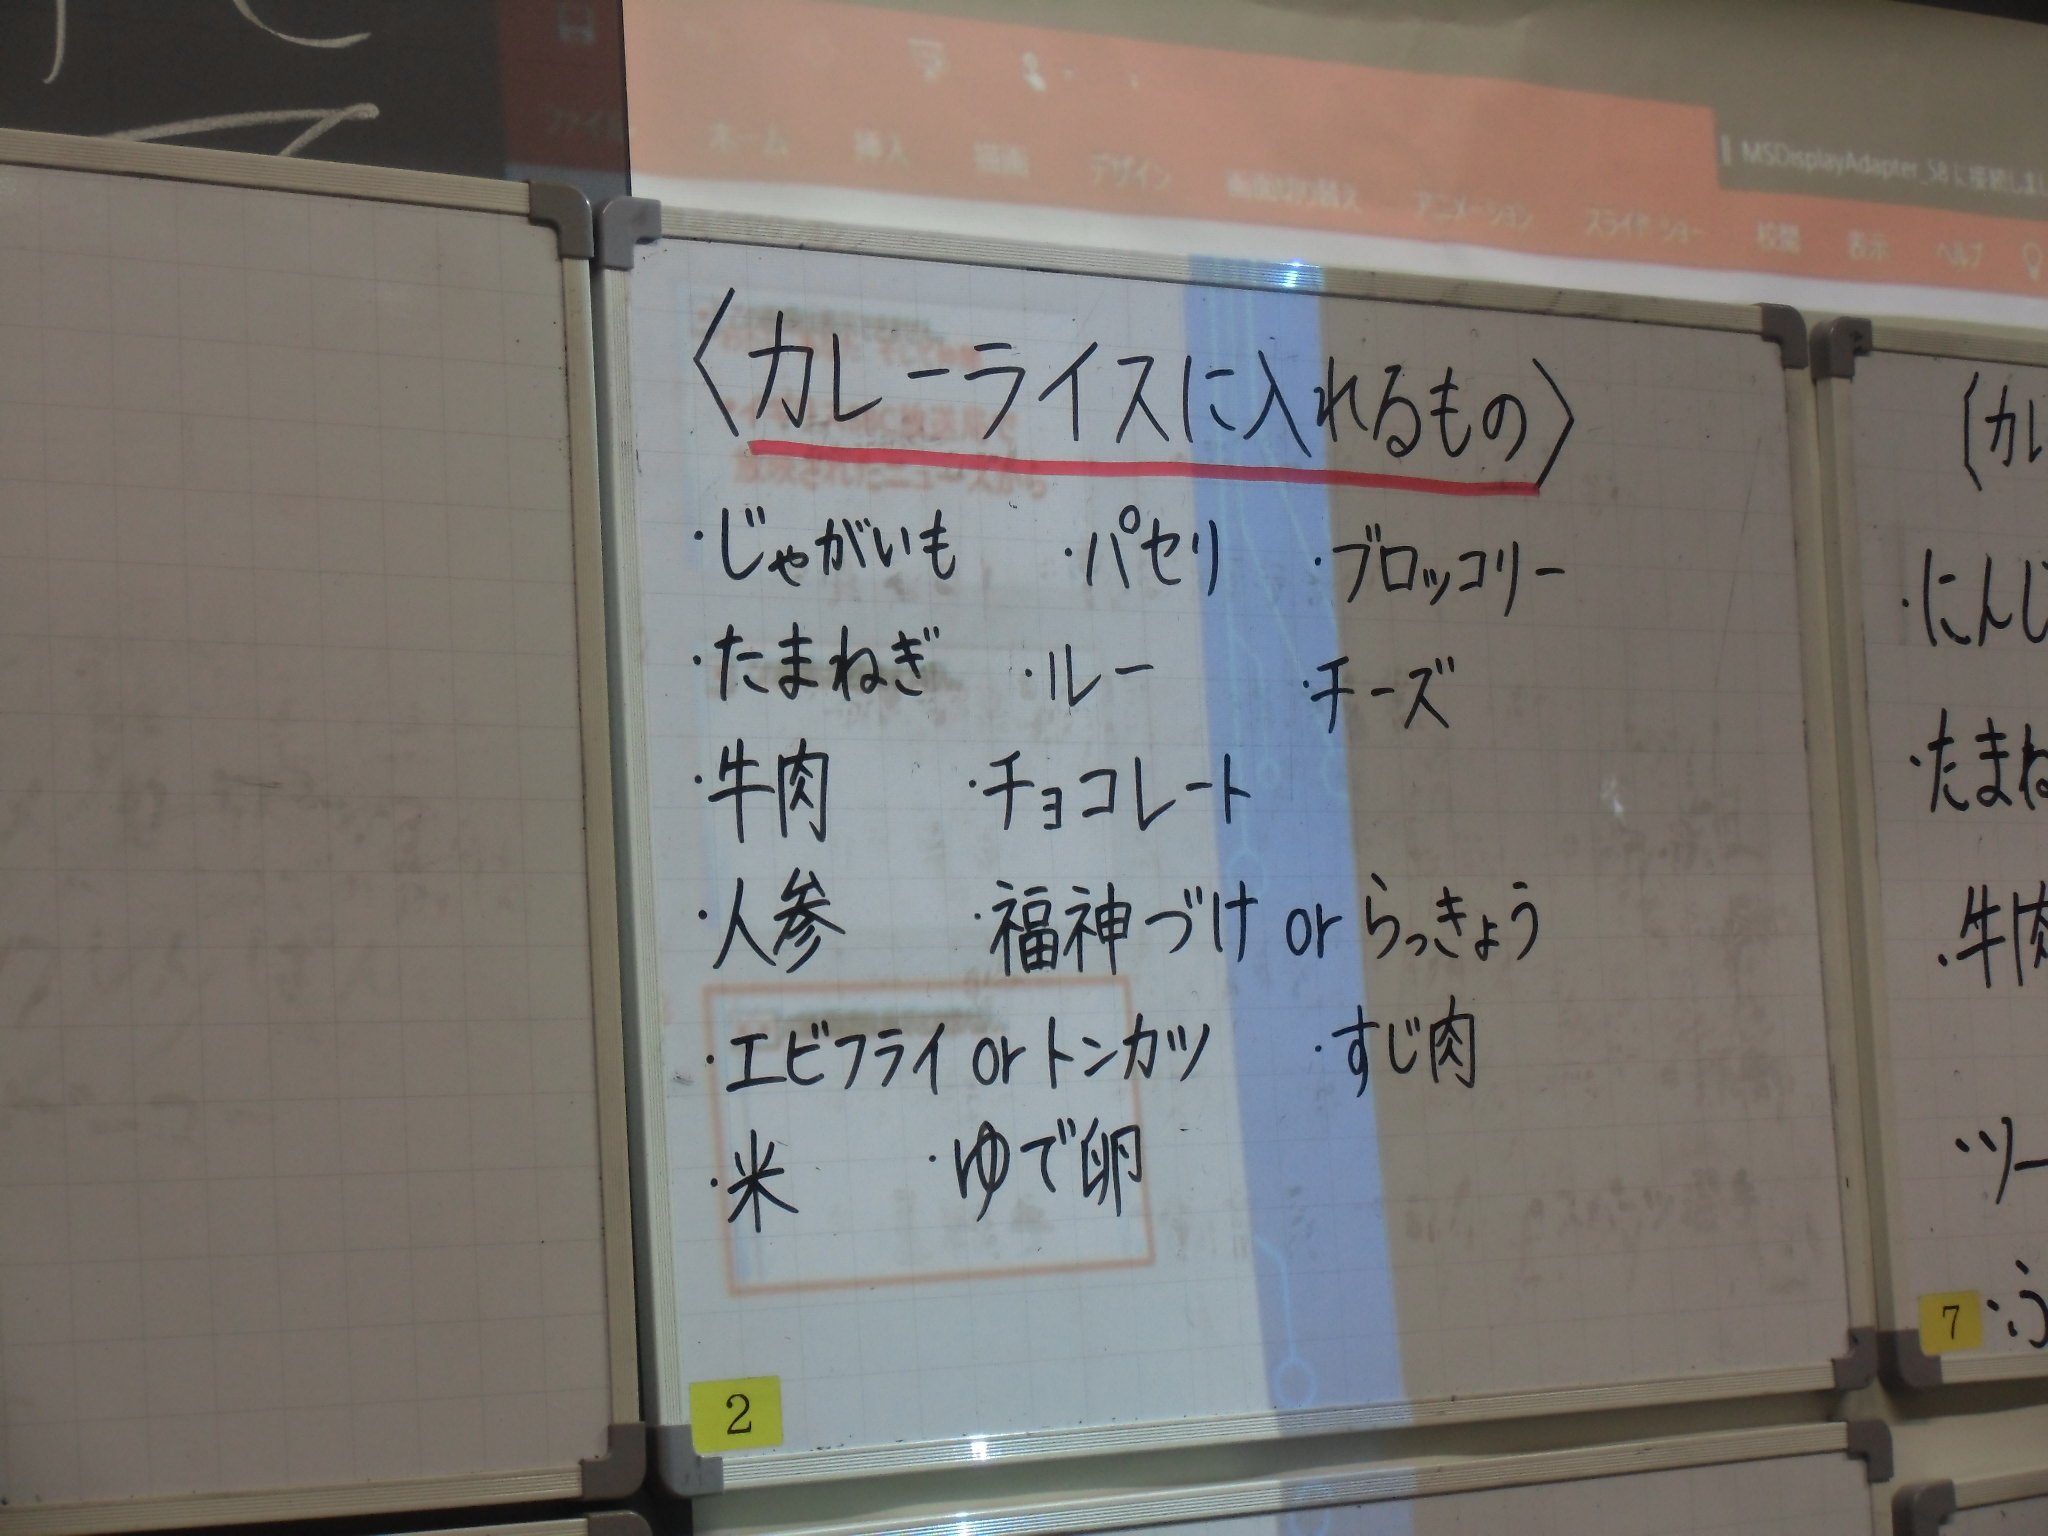 ファイル
ホーム 挿入 描画 デザイン 画面切り替え アニメーション スライド ショー 校閲 表示 ヘルプ
MSDisplayAdapter_58 に接続しまし
〈カレーライスに入れるもの〉
・じゃがいも ・パセリ ・ブロッコリー
・たまねぎ ・ルー ・チーズ
・牛肉 ・チョコレート
・人参 ・福神づけ or らっきょう
・エビフライ or トンカツ ・すじ肉
・米 ・ゆで卵
2
〈カレ
・にんじ
・たまね
・牛肉
・ツー
7